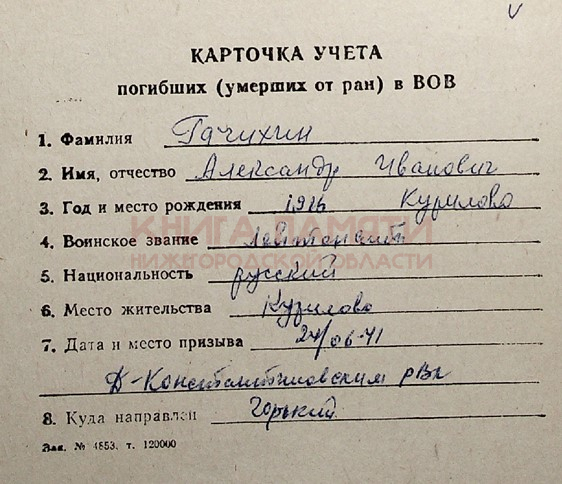 КАРТОЧКА УЧЕТА
погибших (умерших от ран) в ВОВ
1. Фамилия Гачихин
2. Имя, отчество Александр Иванович
3. Год и место рождения 1916 Курилово
КНИГА ПАМЯТИ
4. Воинское звание лейтенант
НИЖЕГОРОДСКОЙ ОБЛАСТИ
5. Национальность русский
6. Место жительства Курилово
7. Дата и место призыва 24/06-41
Д-Константиновским рвк
8. Куда направлен Горький
Зак. № 4853. т. 120000